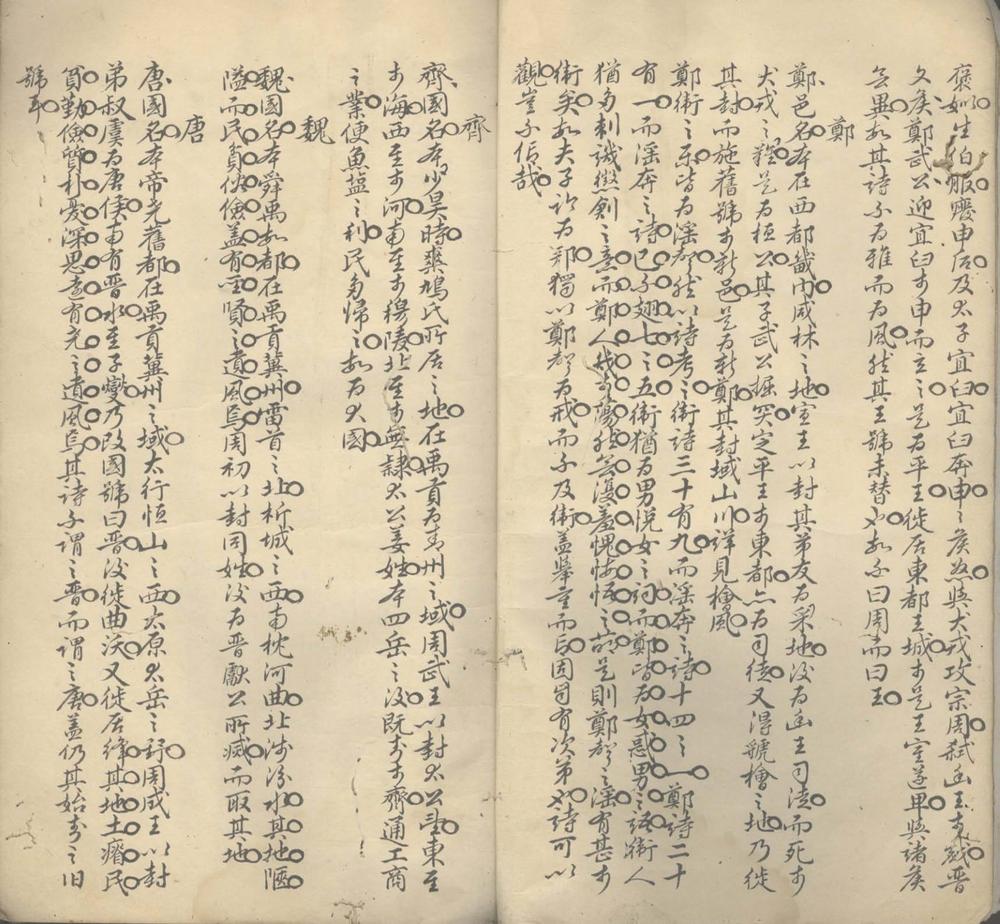 褒姒生伯服廢申后及太子宜臼宜臼奔申申侯怒與犬戎攻宗周弒幽王
文侯鄭武公迎宜臼于申而立之是為平王徙居東都王城于是王室遂卑與諸侯
無異故其詩不為雅而為風然其王號未替也故不曰周而曰王
鄭
鄭邑名本在西都畿內咸林之地宣王以封其弟友為采地後為幽王司徒而死于
犬戎之難是為桓公其子武公掘突定平王于東都亦為司徒又得虢檜之地乃徙
其封而施舊號于新邑是為新鄭其封域山川詳見檜風
鄭衛之樂皆為淫聲然以詩考之衛詩三十有九而淫奔之詩十四之一鄭詩二十
有一而淫奔之詩已不翅七之五衛猶為男悅女之詞而鄭皆為女惑男之語衛人
猶多刺譏懲創之意而鄭人幾于蕩然無復羞愧悔悟之萌是則鄭聲之淫有甚于
衛矣故夫子論為邦獨以鄭聲為戒而不及衛蓋舉重而言固自有次第也詩可以
觀豈不信哉
齊
齊國名本少昊時爽鳩氏所居之地在禹貢為青州之域周武王以封太公望東至
于海西至于河南至于穆陵北至于無隸太公姜姓本四岳之後既封于齊通工商
之業便魚鹽之利民多歸之故為大國
魏
魏國名本舜禹故都在禹貢冀州雷首之北析城之西南枕河曲北涉汾水其地陿
隘而民貧俗儉蓋有聖賢之遺風焉周初以封同姓後為晉獻公所滅而取其地
唐
唐國名本帝堯舊都在禹貢冀州之域太行恒山之西太原太岳之野周成王以封
弟叔虞為唐侯南有晉水至子燮乃改國號曰晉後徙曲沃又徙居絳其地土瘠民
貧勤儉質朴憂深思遠有堯之遺風焉其詩不謂之晉而謂之唐蓋仍其始封之舊
號耳